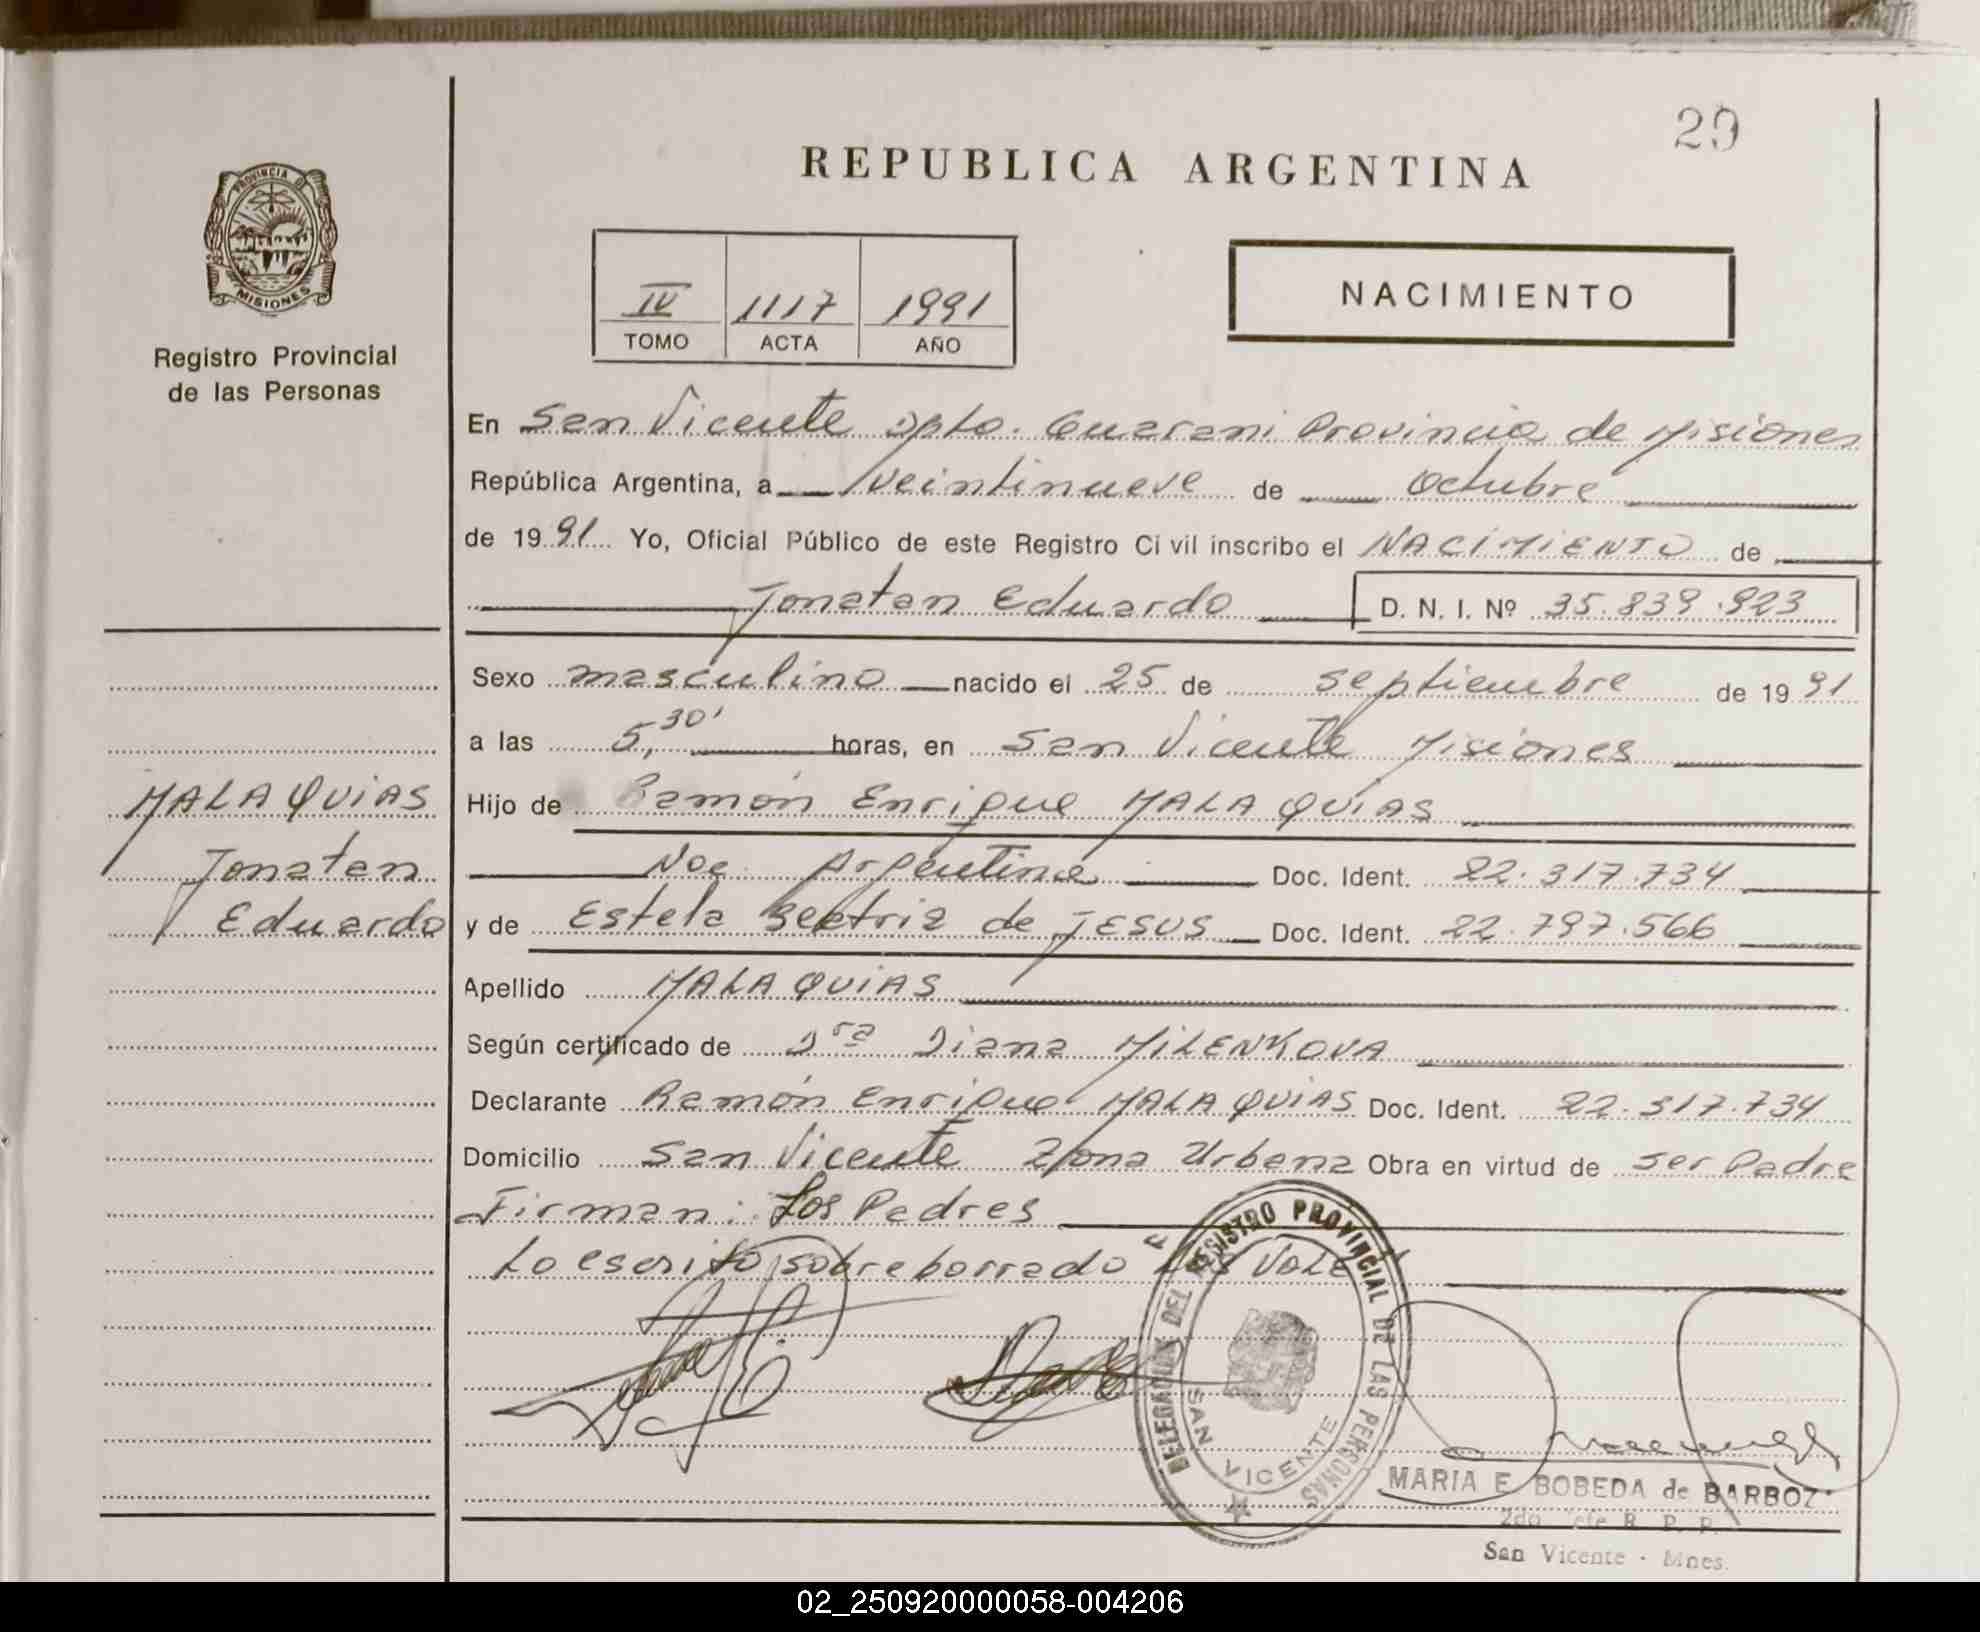 29
REPUBLICA ARGENTINA
PROVINCIA DE
MISIONES
Registro Provincial
de las Personas
IV 1117 1991
TOMO ACTA AÑO
NACIMIENTO
En San Vicente Dpto. Guarani Provincia de Misiones
República Argentina, a Veintinueve de Octubre
de 1991 Yo, Oficial Público de este Registro Civil inscribo el NACIMIENTO de
Jonatan Eduardo D. N. I. Nº 35.839.923
Sexo masculino nacido el 25 de septiembre de 1991
a las 5,30' horas, en San Vicente Misiones
MALAQUIAS
Jonatan
Eduardo
Hijo de Ramón Enrique MALAQUIAS
Nac. Argentina Doc. Ident. 22.317.734
y de Estela Beatriz de JESUS Doc. Ident. 22.797.566
Apellido MALAQUIAS
Según certificado de Dra Diana MILENKOVA
Declarante Ramón Enrique MALAQUIAS Doc. Ident. 22.317.734
Domicilio San Vicente Zona Urbana Obra en virtud de ser Padre
Firman: Los Padres
Lo escrito sobreborrado Vale
DELEGACION DEL REGISTRO PROVINCIAL DE LAS PERSONAS
SAN VICENTE
MARIA E. BOBEDA de BARBOZ
2do R. P. P.
San Vicente - Mnes.
02_250920000058-004206